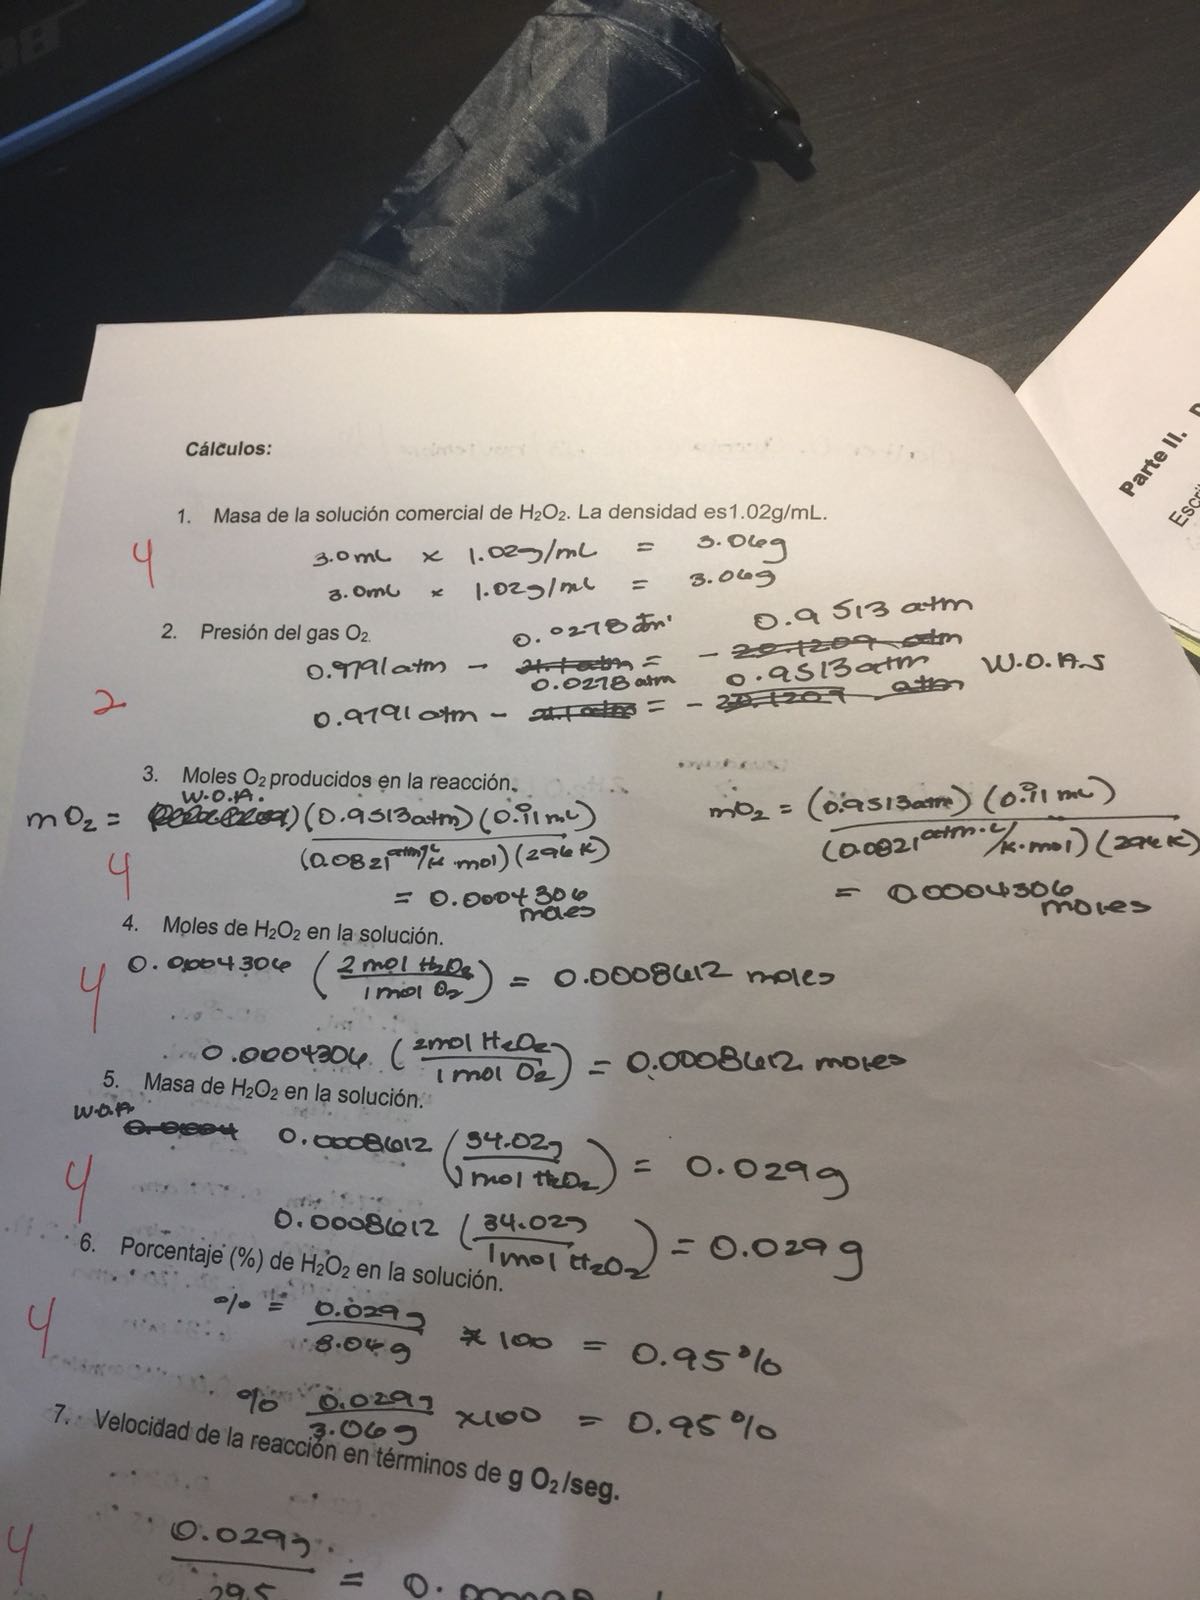 Cálculos:
1. Masa de la solución comercial de H₂O₂. La densidad es1.02g/mL.
4
3.0mL x 1.02g/mL = 3.06g
3.0mL x 1.02g/mL = 3.06g
2. Presión del gas O₂.
0.0278 atm 0.9513 atm
0.9791 atm - 21.1 atm = - 20.1209 atm
0.0278 atm 0.9513 atm W.O.A.S
2
0.9791 atm - 21.1 atm = - 20.1209 atm
3. Moles O₂ producidos en la reacción.
W.O.A.
mO₂ = (0.9513atm)(0.11 mL)
(0.0821 atm·L/K·mol)(296K)
= 0.0004306 moles
mO₂ = (0.9513atm)(0.11 mL)
(0.0821 atm·L/K·mol)(296K)
= 0.0004306 moles
4
4. Moles de H₂O₂ en la solución.
4
0.0004306 (2 mol H₂O₂ / 1 mol O₂) = 0.0008612 moles
0.0004306 (2mol H₂O₂ / 1 mol O₂) = 0.0008612 moles
5. Masa de H₂O₂ en la solución.
W.O.A.
0.0004 0.0008612 (34.02g / 1 mol H₂O₂) = 0.029g
4
0.0008612 (34.02g / 1 mol H₂O₂) = 0.029 g
6. Porcentaje (%) de H₂O₂ en la solución.
4
% = 0.029g / 3.06g x 100 = 0.95%
% 0.029g / 3.06g x100 = 0.95%
7. Velocidad de la reacción en términos de g O₂/seg.
4
0.029g
295 = 0.
Parte II.